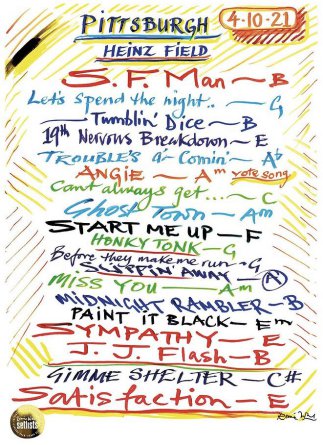 PITTSBURGH
4-10-21
HEINZ FIELD
S.F. Man — B
Let's spend the night.. — G
Tumblin' Dice — B
19th Nervous Breakdown — E
TROUBLE'S A- Comin' — Ab
ANGIE — Am vote song
Can't always get... — C
Ghost Town — Am
START ME UP — F
HONKY TONK — G
Before they make me run — G
SLIPPIN' AWAY — A
MISS YOU — Am
MIDNIGHT RAMBLER — B
PAINT IT BLACK — Em
SYMPATHY — E
J. J. Flash — B
GIMME SHELTER — C#
Satisfaction — E
setlists